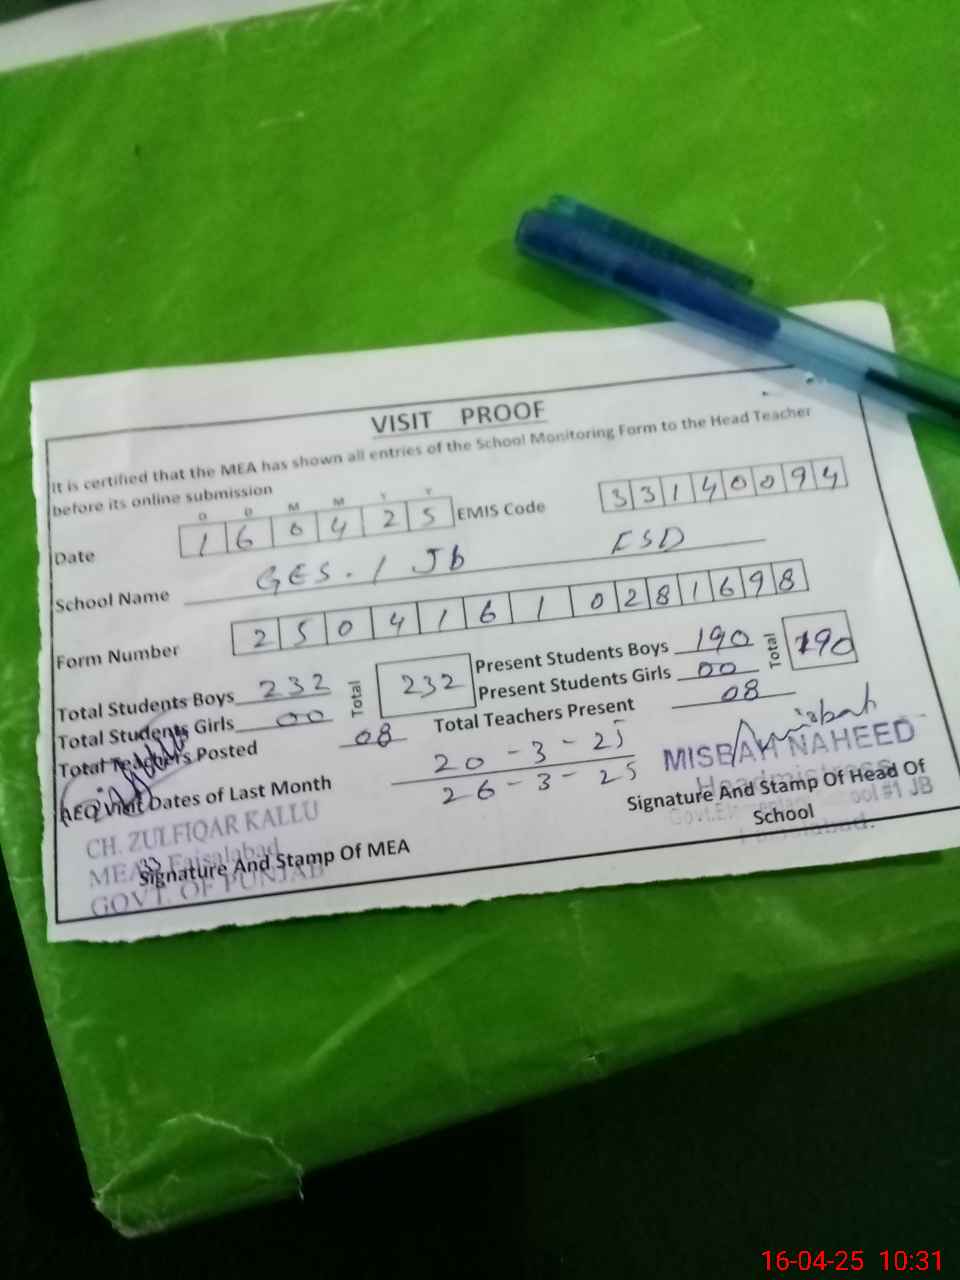 VISIT PROOF
It is certified that the MEA has shown all entries of the School Monitoring Form to the Head Teacher
before its online submission
D D M M Y Y
Date 1 6 0 4 2 5 EMIS Code 3 3 1 4 0 0 9 4
School Name GES. 1 Jb FSD
Form Number 2 5 0 4 1 6 1 0 2 8 1 6 9 8
Total Students Boys 232 Total 232 Present Students Boys 190 Total 190
Total Students Girls 00 Present Students Girls 00
Total Teachers Posted 08 Total Teachers Present 08
AEO Visit Dates of Last Month 20-3-25
26-3-25
Misbah
MISBAH NAHEED
Headmistress
Govt. Ele School #1 JB
Faisalabad.
Signature And Stamp Of Head Of
School
CH. ZULFIQAR KALLU
MEA 33 Faisalabad
GOVT. OF PUNJAB
Signature And Stamp Of MEA
16-04-25 10:31